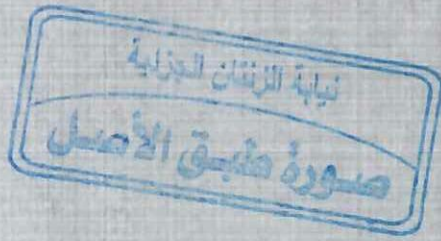 نيابة الزنتان الجزئية
صورة طبق الأصل